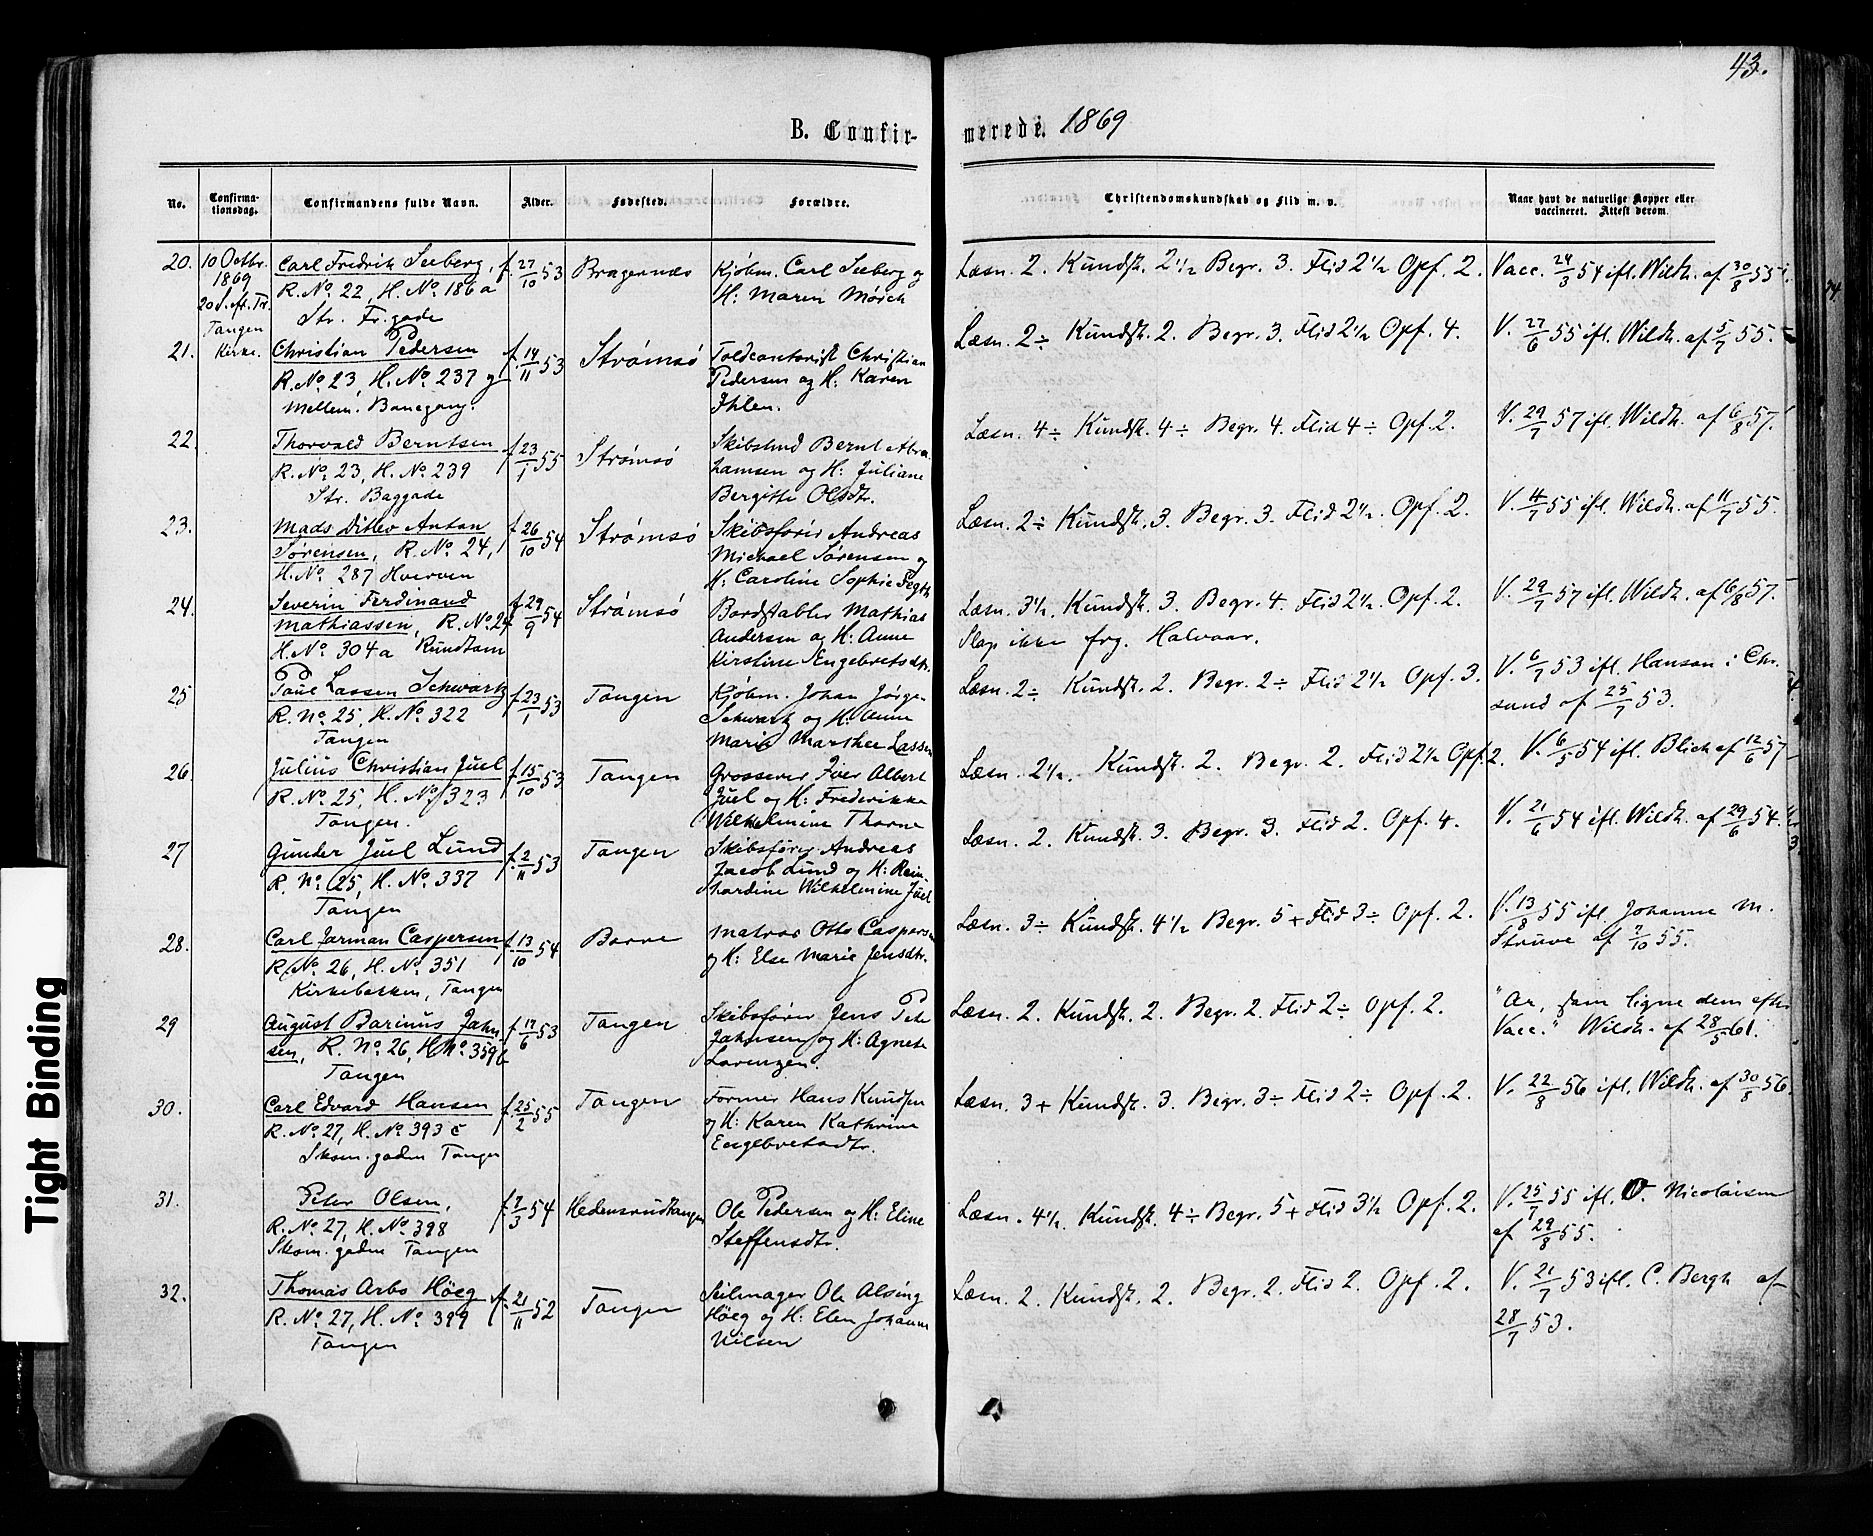 43.
B. Confirmerede. 1869
No. Confirmationsdag. Confirmandens fulde Navn. Alder. Fødested. Forældre. Christendomskundskab og Flid m. v. Naar havt de naturlige Kopper eller vaccineret. Attest derom.
20. 10 Octbr. 1869 20 S. Aft. Tr. Tangen Kirke.
Carl Fredrik Seeberg, f. 27/10 53 Bragernæs Kjøbm. Carl Seeberg og
R. No. 22, H. No. 186a H: Maren Mörch
Str. Fr. gade
Læsn. 2. Kundsk. 2 1/2 Begr. 3. Flid 2 1/2 Opf. 2. Vacc. 24/3 54 ifl. Wildh. af 30/8 55
21. Christian Pedersen f. 14/11 53 Strømsö Toldcontorist Christian
R. No. 23, H. No. 237 og Pedersen og H: Karen
Mellem. Banegang. Ihlen.
Læsn. 2÷ Kundsk. 2. Begr. 3. Flid 2 1/2 Opf. 4. V. 27/6 55 ifl. Wildh. af 5/7 55.
22. Thorvald Berntsen f. 23/1 55 Strømsö Skibstmd Bernt Abra-
R. No. 23, H. No. 239 hamsen og H: Juliane
Str. Baggade Bergitte Olsdtr.
Læsn. 4÷ Kundsk. 4÷ Begr. 4. Flid 4÷ Opf. 2. V. 29/7 57 ifl. Wildh. af 6/8 57.
23. Mads Ditlev Anton f. 26/10 54 Strømsö Skibsfører Andreas
Sørensen, R. No. 24, Michael Sørensen og
H. No. 287 Hverven H: Caroline Sophie
Læsn. 2÷ Kundsk. 3. Begr. 3. Flid 2 1/2. Opf. 2. V. 4/7 55 ifl. Wildh. af 11/7 55.
24. Severin Ferdinand f. 29/9 54 Strømsö Bordstabler Mathias
Mathiassen, R. No. 24 Andersen og H: Anne
H. No. 304a Rundtom Kirstine Engebretsdtr.
Læsn. 3 1/2. Kundsk. 3. Begr. 4. Flid 2 1/2. Opf. 2. V. 29/7 57 ifl. Wildh. af 6/8 57.
Slap ikke frg. Halvaar.
25 Paul Lassen Schwartz f. 23/1 53 Tangen Kjøbm. Johan Jörgen
R. No. 25, H. No. 322 Schwartz og H: Anne
Tangen Marie Marthea Lassen
Læsn. 2÷ Kundsk. 2. Begr. 2÷ Flid 2 1/2 Opf. 3. V. 6/7 53 ifl. Hanson i Chr.
sund af 25/7 53.
26 Julius Christian Juel f. 15/10 53 Tangen Grosserer Iver Albert
R. No. 25, H. No. 323 Juel og H: Frederikke
Tangen. Wilhelmine Thorne
Læsn. 2 1/2. Kundsk. 2. Begr. 2. Flid 2 1/2 Opf. 2. V. 6/5 54 ifl. Blich af 12/6 57
27 Gunder Juel Lund f. 2/11 53 Tangen Skibsfører Andreas
R. No. 25, H. No. 337 Jacob Lund og H: Rein-
Tangen hardine Wilhelmine Juel
Læsn. 2. Kundsk. 3. Begr. 3. Flid 2. Opf. 4. V. 21/6 54 ifl. Wildh. af 29/6 54.
28. Carl Jarman Caspersen f. 13/10 54 Borre Matros Otto Caspersen
R. No. 26, H. No. 351 og H: Else Marie Jensdtr.
Kirkebakken, Tangen
Læsn. 3÷ Kundsk. 4 1/2 Begr. 5+ Flid 3÷ Opf. 2. V. 13/8 55 ifl. Johanne M.
Struve af 7/10 55.
29 August Barinus Jahn- f. 17/6 53 Tangen Skibsfører Jens Peter
sen, R. No. 26, H. No. 359 b Jahnsen og H: Agnete
Tangen Lorenzen.
Læsn. 2. Kundsk. 2. Begr. 2. Flid 2÷ Opf. 2. "Ar, som ligne dem efter
Vacc." Wildh. af 28/5 61.
30. Carl Edvard Hansen f. 25/2 55 Tangen Former Hans Knudsen
R. No. 27, H. No. 393 c og H: Karen Kathrine
Skom. gaden Tangen Engebretsdtr.
Læsn. 3+ Kundsk. 3. Begr. 3÷ Flid 2÷ Opf. 2. V. 22/8 56 ifl. Wildh. af 30/8 56.
31. Peter Olsen, f. 7/3 54 Hedensrudtangen Ole Pedersen og H: Eline
R. No. 27, H. No. 398 Steffensdtr.
Skom. gaden Tangen
Læsn. 4 1/2. Kundsk. 4÷ Begr. 5+ Flid 3 1/2 Opf. 2. V. 25/7 55 ifl. O. Nicolaisen
af 29/8 55.
32. Thomas Arbo Höeg f. 21/11 52 Tangen Seilmager Ole Alsing
R. No. 27, H. No. 399 Höeg og H: Elen Johanne
Tangen Nilsen
Læsn. 2. Kundsk. 2. Begr. 2. Flid 2. Opf. 2. V. 21/7 53 ifl. C. Bergh af
28/7 53.
Tight Binding